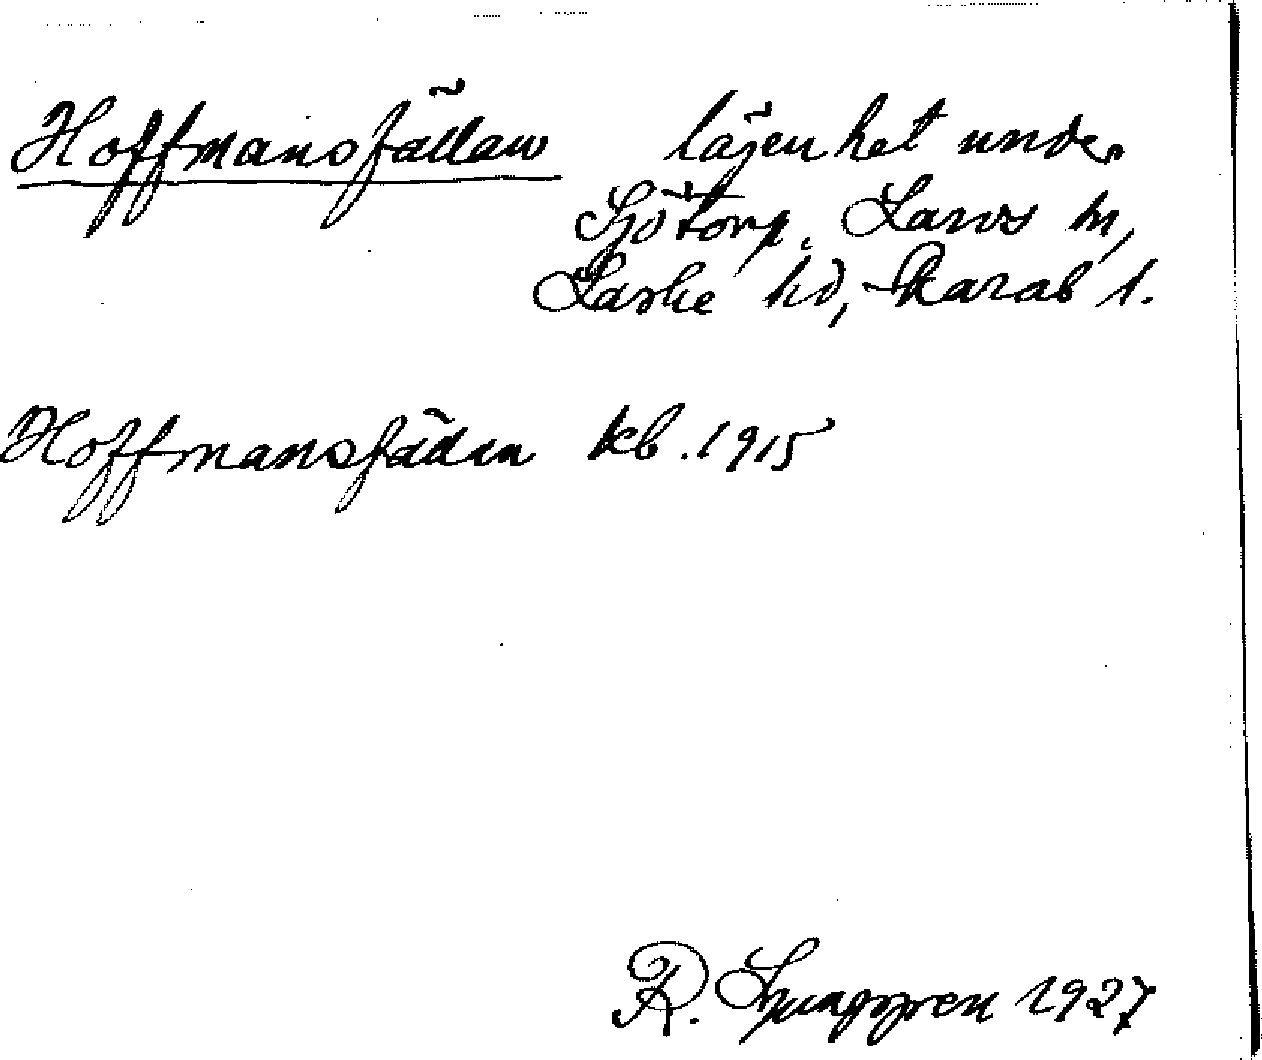 Hoffmansfällan lägenhet under
Sjötorp, Larvs sn,
Laske hd, Skarab l.
Hoffmansfädan kb. 1915
R. Ljunggren 1927